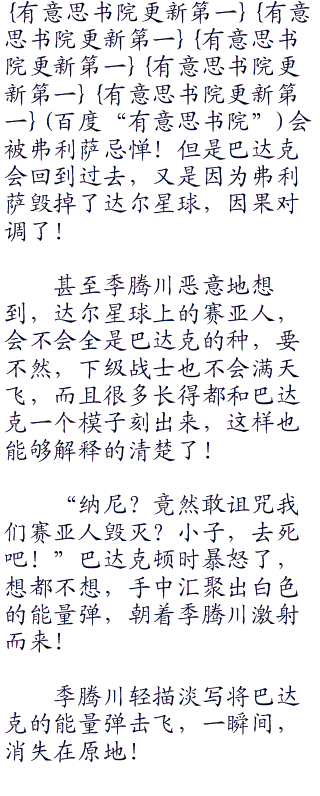 {有意思书院更新第一} {有意
思书院更新第一} {有意思书
院更新第一} {有意思书院更
新第一} {有意思书院更新第
一} (百度“有意思书院”)会
被弗利萨忌惮！但是巴达克
会回到过去，又是因为弗利
萨毁掉了达尔星球，因果对
调了！
甚至季腾川恶意地想
到，达尔星球上的赛亚人，
会不会全是巴达克的种，要
不然，下级战士也不会满天
飞，而且很多长得都和巴达
克一个模子刻出来，这样也
能够解释的清楚了！
“纳尼？竟然敢诅咒我
们赛亚人毁灭？小子，去死
吧！”巴达克顿时暴怒了，
想都不想，手中汇聚出白色
的能量弹，朝着季腾川激射
而来！
季腾川轻描淡写将巴达
克的能量弹击飞，一瞬间，
消失在原地！